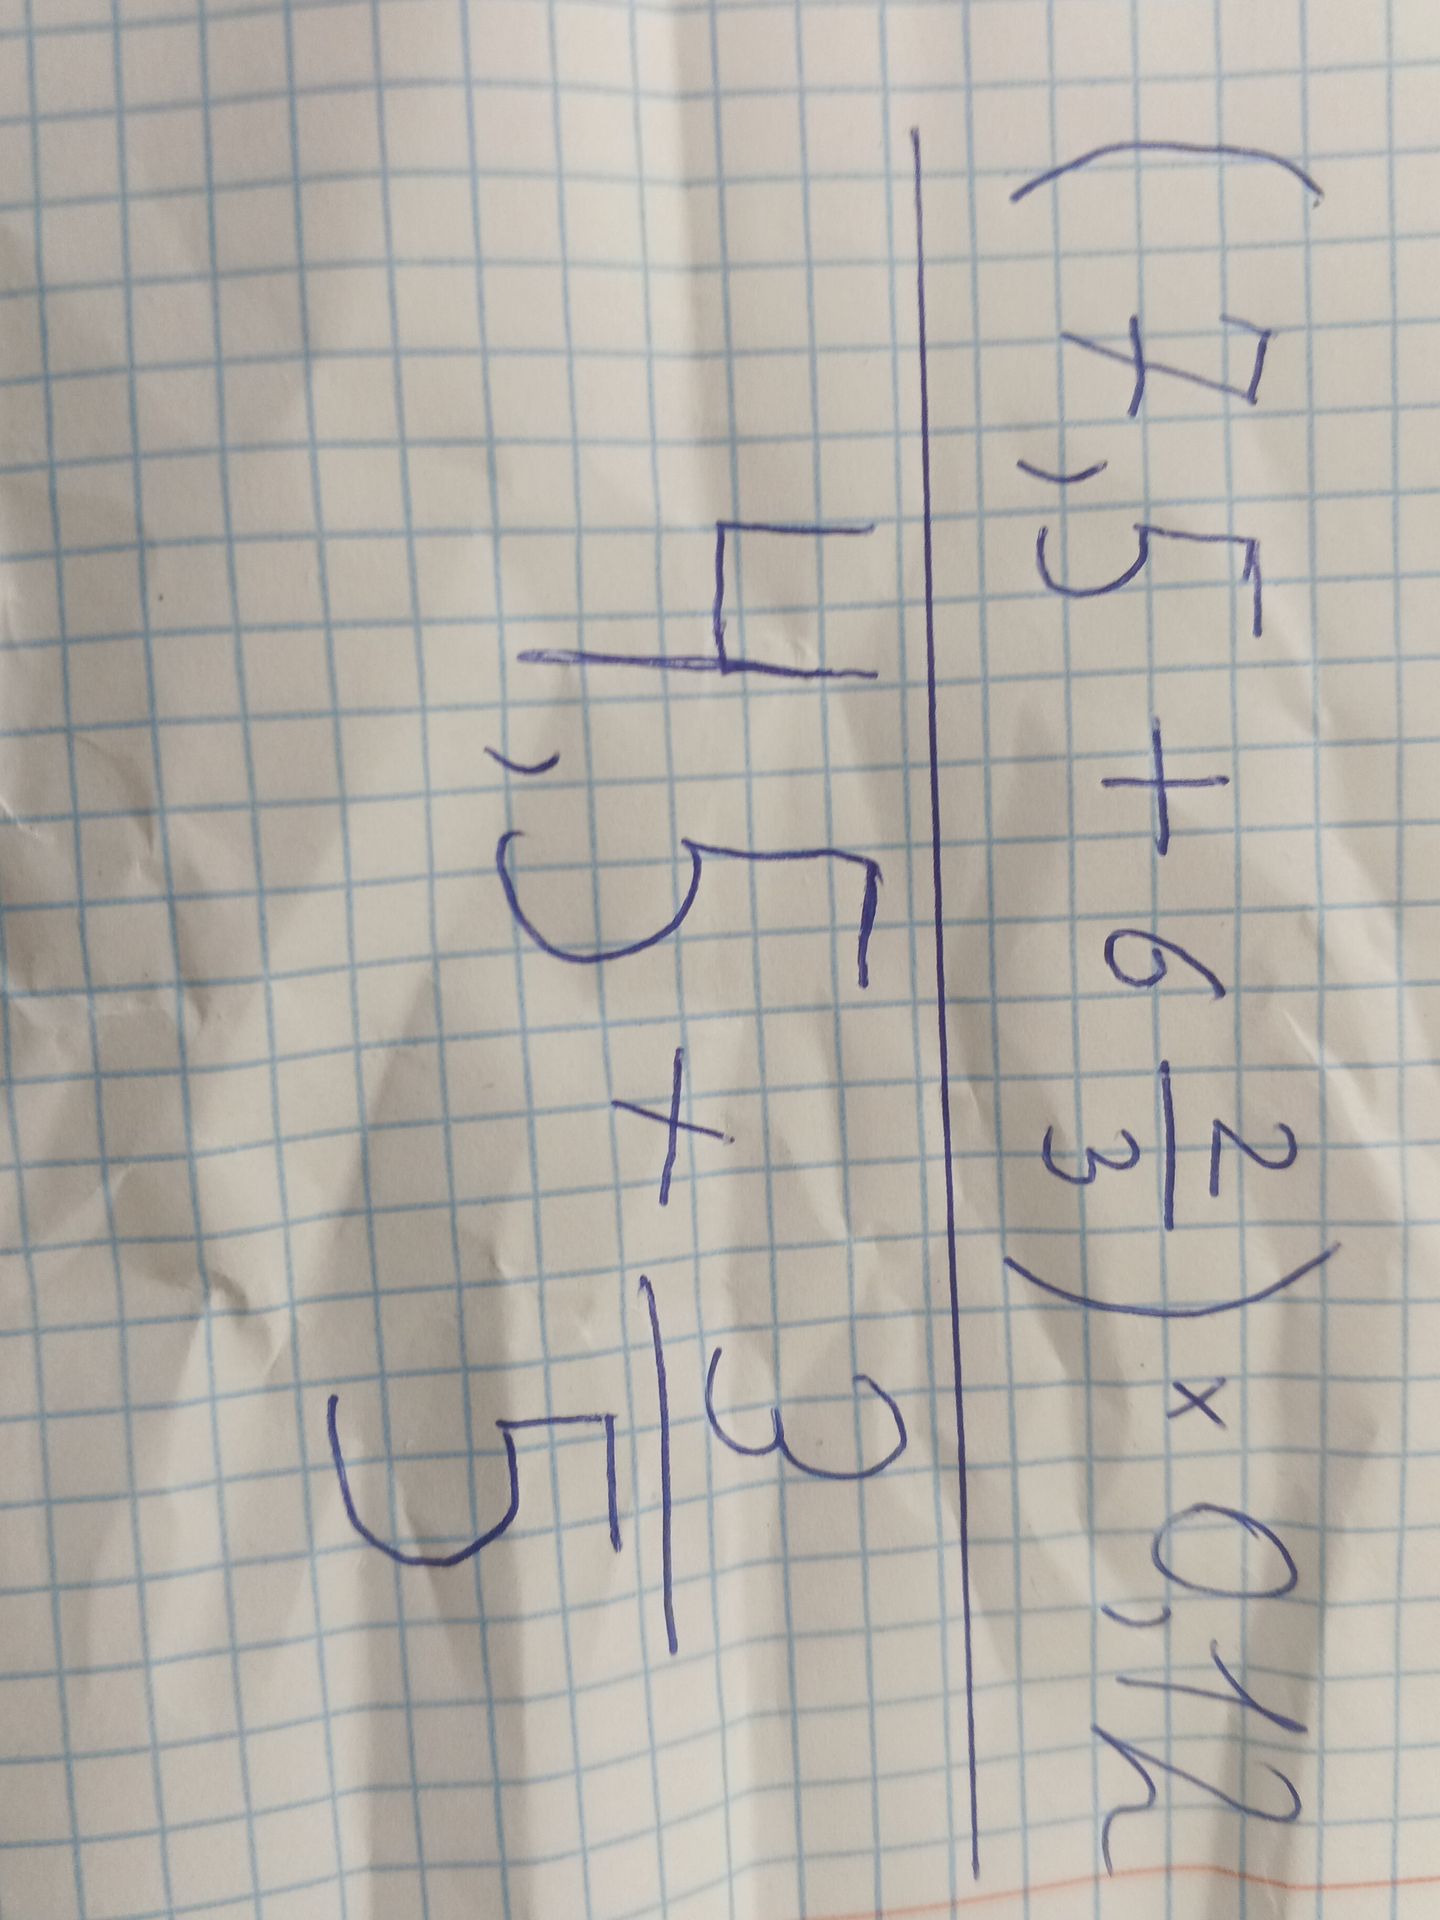 (7,5 + 6 2/3) × 0,12
4,5 × 3/5